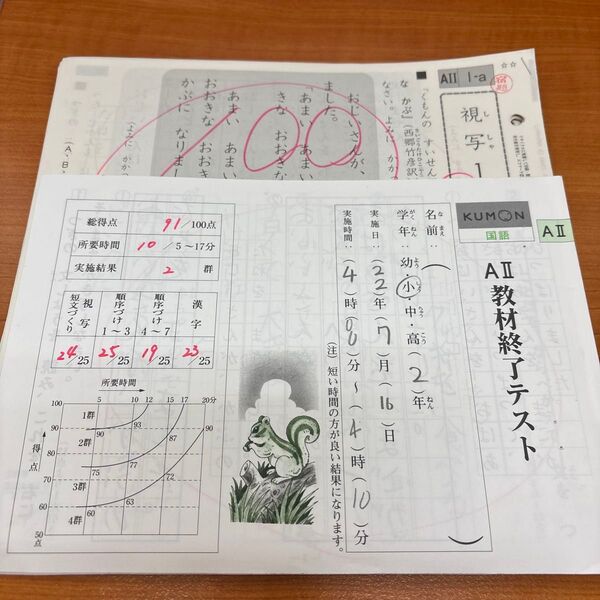 KUMON
国語
AⅡ
AⅡ教材終了テスト
名前：（　　　）
学年：幼・小・中・高（2）年
実施日：（22）年（7）月（16）日
実施時間：（4）時（00）分～（4）時（10）分
（注）短い時間の方が良い結果になります。
総得点 91／100点
所要時間 10／5～17分
実施結果 2 群
視写 短文づくり 24/25
順序づけ 1～3 25/25
順序づけ 4～7 19/25
漢字 23/25
所要時間
5 10 12 15 17 20分
得点
100 90 80 70 60 50点
1群 2群 3群 4群
90 93 87 90
75 77 72
60 63
AⅡ 1-a
宿題
視写1
「くもんの すいせん
な かぶ」（西郷竹彦訳
なさい。よみに かか
おじいさんが、
ました。
「あまい あまい
きな おおきな
あまい あまい
おおきな おおき
かぶに なりまし
（よみに かか
100